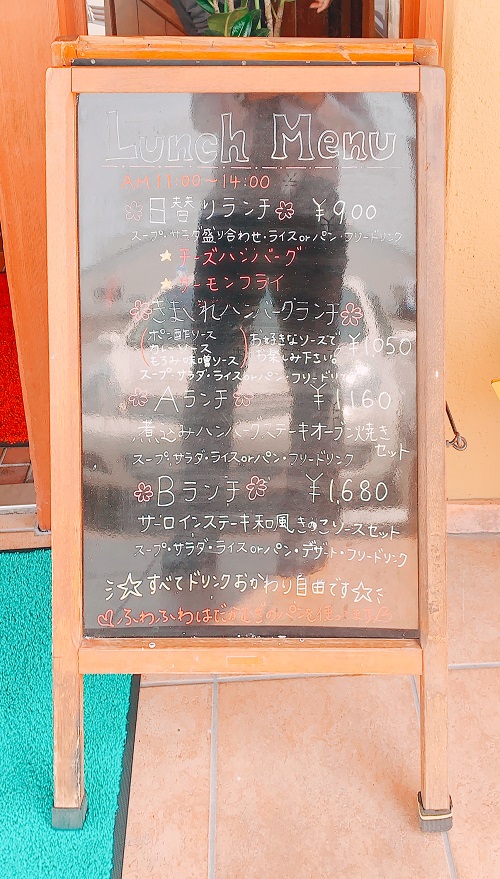 Lunch Menu
AM 11:00~14:00
日替りランチ ¥900
スープ・サラダ盛り合わせ・ライスorパン・フリードリンク
チーズハンバーグ
サーモンフライ
きまぐれハンバーグランチ
ポン酢ソース
ソース
もろみ味噌ソース
お好きなソースで
お楽しみ下さい。
¥1050
スープ・サラダ・ライスorパン・フリードリンク
Aランチ ¥1160
煮込みハンバーグステーキオーブン焼き
セット
スープ・サラダ・ライスorパン・フリードリンク
Bランチ ¥1,680
サーロインステーキ和風きのこソースセット
スープ・サラダ・ライスorパン・デザート・フリードリンク
すべてドリンクおかわり自由です
ふわふわはだか